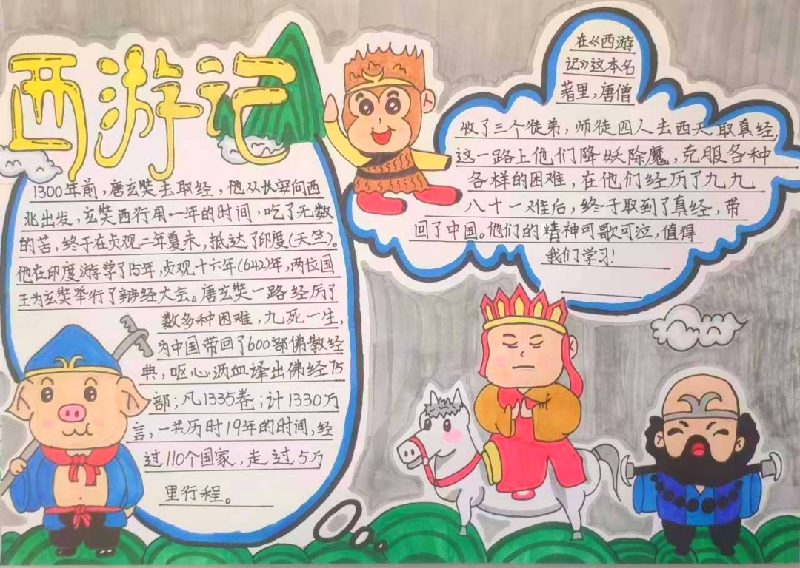 西游记
1300年前，唐玄奘去取经，他从长安向西
北出发，玄奘西行用一年的时间，吃了无数
的苦，终于在贞观二年夏末，抵达了印度(天竺)。
他在印度游学了15年，贞观十六年(642)年，两位国
王为玄奘举行了辩经大会。唐玄奘一路经历了
数多种困难，九死一生，
为中国带回了600部佛教经
典，呕心沥血译出佛经75
部；凡1335卷；计1330万
言，一共历时19年的时间，经
过110个国家，走过5万
里行程。
在《西游
记》这本名
著里，唐僧
收了三个徒弟，师徒四人去西天取真经，
这一路上他们降妖除魔，克服各种
各样的困难，在他们经历了九九
八十一难后，终于取到了真经，带
回了中国。他们的精神可歌可泣，值得
我们学习！